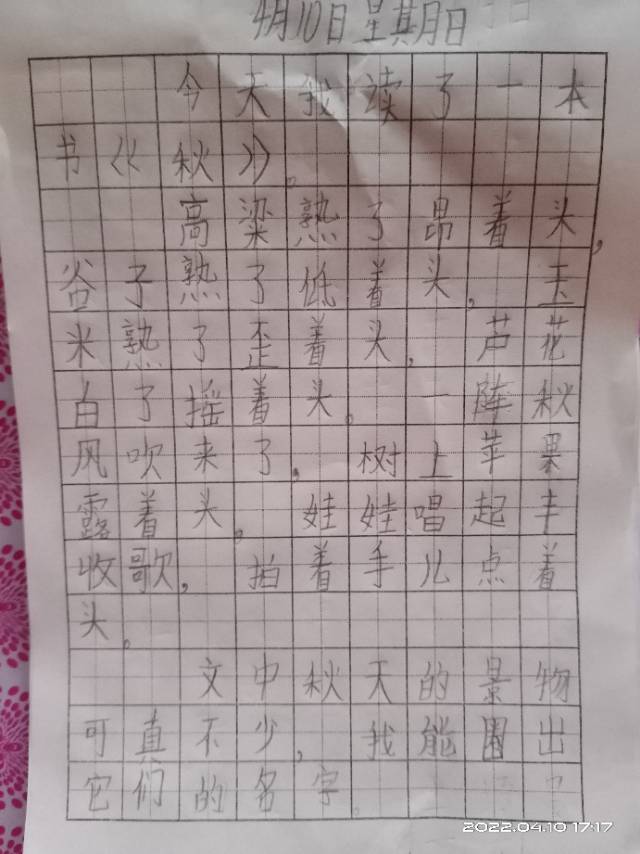 4月10日星期日
今天我读了一本
书《秋》。
高粱熟了昂着头,
谷子熟了低着头,玉
米熟了歪着头,芦花
白了摇着头。一阵秋
风吹来了,树上苹果
露着头。娃娃唱起丰
收歌,拍着手儿点着
头。
文中秋天的景物
可真不少,我能圈出
它们的名字。
2022.04.10 17:17